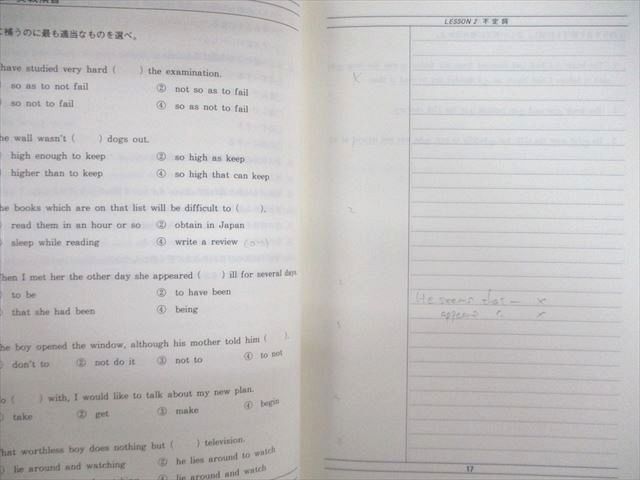 に補うのに最も適当なものを選べ。
have studied very hard (　) the examination.
so as to not fail ② not so as to fail
so not to fail ④ so as not to fail
he wall wasn't (　) dogs out.
high enough to keep ② so high as keep
higher than to keep ④ so high that can keep
he books which are on that list will be difficult to (　).
read them in an hour or so ② obtain in Japan
sleep while reading ④ write a review
hen I met her the other day she appeared (　) ill for several days.
to be ② to have been
that she had been ④ being
he boy opened the window, although his mother told him (　).
don't to ② not do it ③ not to ④ to not
o (　) with, I would like to talk about my new plan.
take ② get ③ make ④ begin
hat worthless boy does nothing but (　) television.
lie around and watching ② he lies around to watch
lie around to watch ④ lie around and watch
LESSON 2 不定詞
He seems that — ×
appears 〃 ×
17